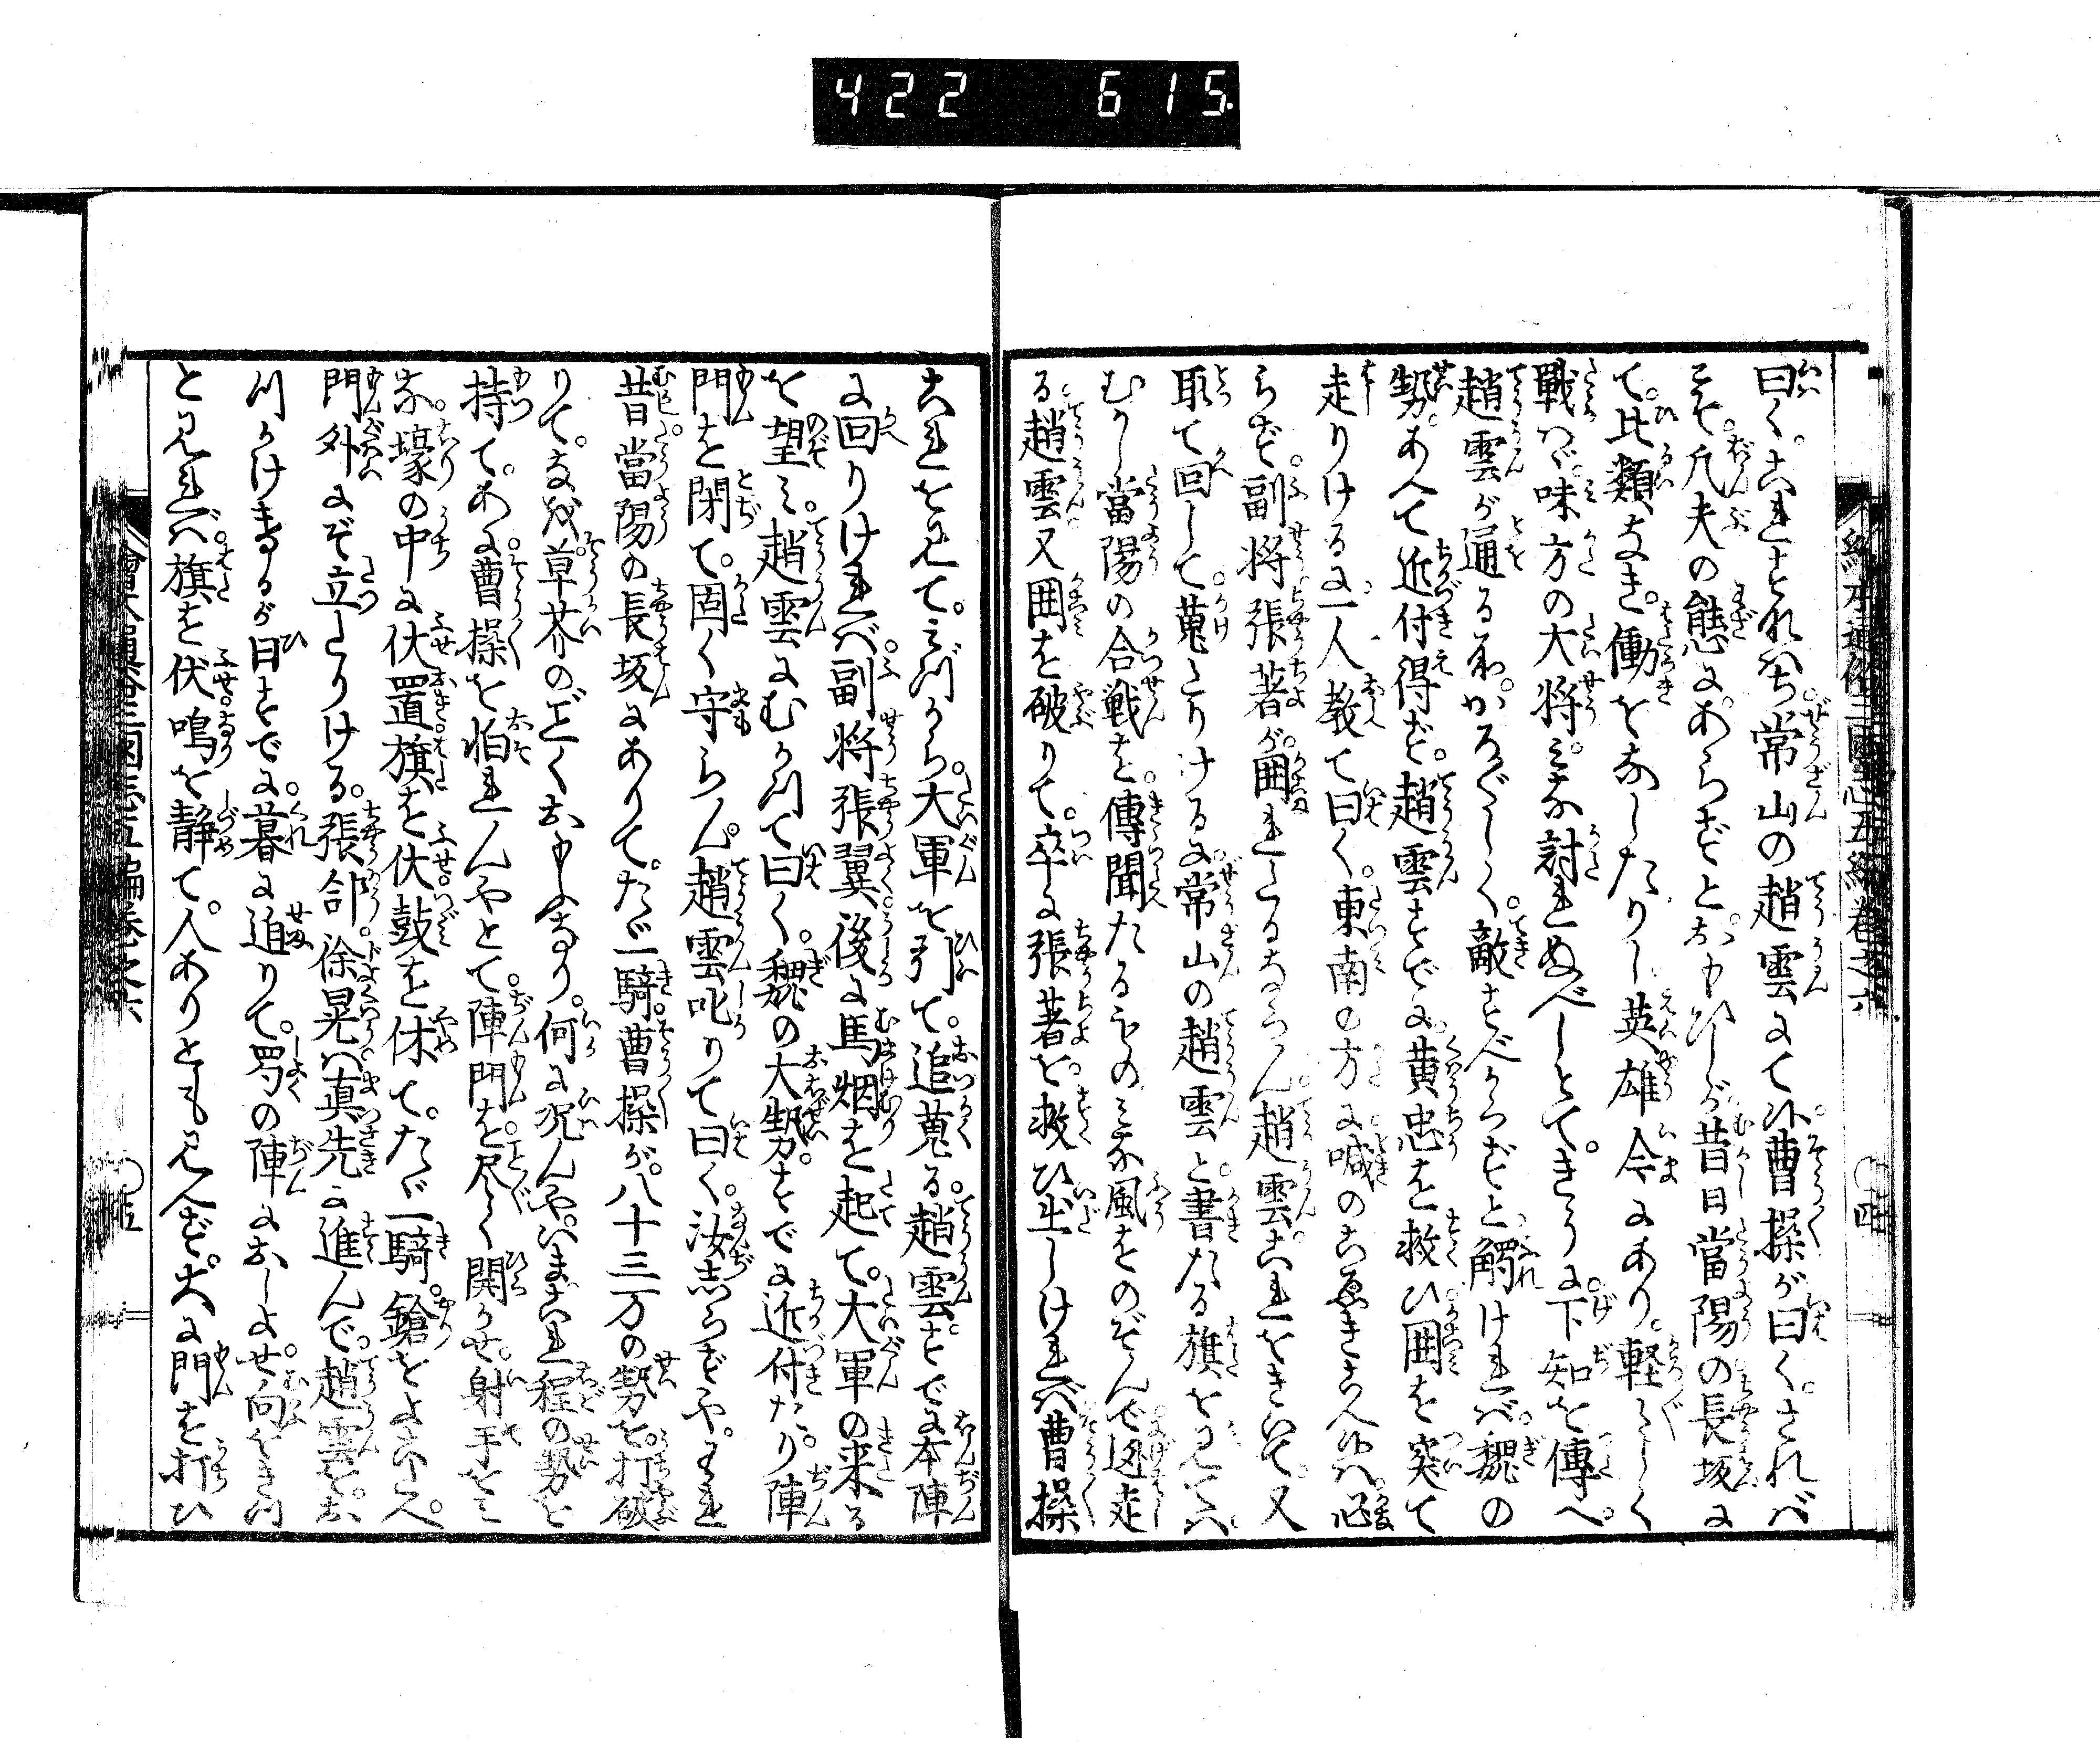 422 615
曰く。これすなはち常山の趙雲にて候。曹操が曰く。されば
こそ。凡夫の態にあらずとおもひしが。昔日當陽の長坂に
て。比類なき。働をなしたりし英雄今にあり。軽々しく
戰はゞ。味方の大将みな討れぬべしとて。きうに下知を傳へ。
趙雲が通る所。かろ〴〵しく。敵すべからずと觸ければ。魏の
勢。あへて近付得ず。趙雲すでに黄忠を救ひ囲を突て
走りけるに。一人教て曰く。東南の方に喊のこゑきこへ候は。必
らず。副将張著が。囲れたるならん趙雲これをきいて。又
取て回して。蒐たりけるに。常山の趙雲と。書たる旗を見ては
むかし當陽の合戦を。傳聞たるもの。みな風をのぞんで迯走
る趙雲又囲を破りて。卒に張著を。救ひ出しければ曹操
これを見て。みづから。大軍を引て。追蒐る。趙雲すでに本陣
に回りければ副将張翼。後に馬烟を起て。大軍の来る
を望み。趙雲にむかつて曰く。魏の大勢。すでに近付たり陣
門を閉て。固く守らん。趙雲叱りて曰く。汝志らずや。われ
昔。當陽の長坂にありて。たゞ一騎。曹操が。八十三万の勢を。打破
りて。なほ草芥のごくおもへるなり。何に况んや。いまこれ程の勢を
持て。あに曹操を怕れんやとて。陣門を。尽く開かせ。射手をみ
な。壕の中に伏置旗を伏鼓を休て。たゞ一騎。鎗をよこたへ。
門外にぞ立たりける。張郃。徐晃は。真先に進んで。趙雲を。お
つかけきるが日すでに。暮に迫りて。蜀の陣におしよせ。向をきつ
と見れば。旗を伏鳴を静て。人ありとも見へず。大に門を打ひ
繪本通俗三國志五編卷之六 〇四
繪本通俗三國志五編卷之六 〇五